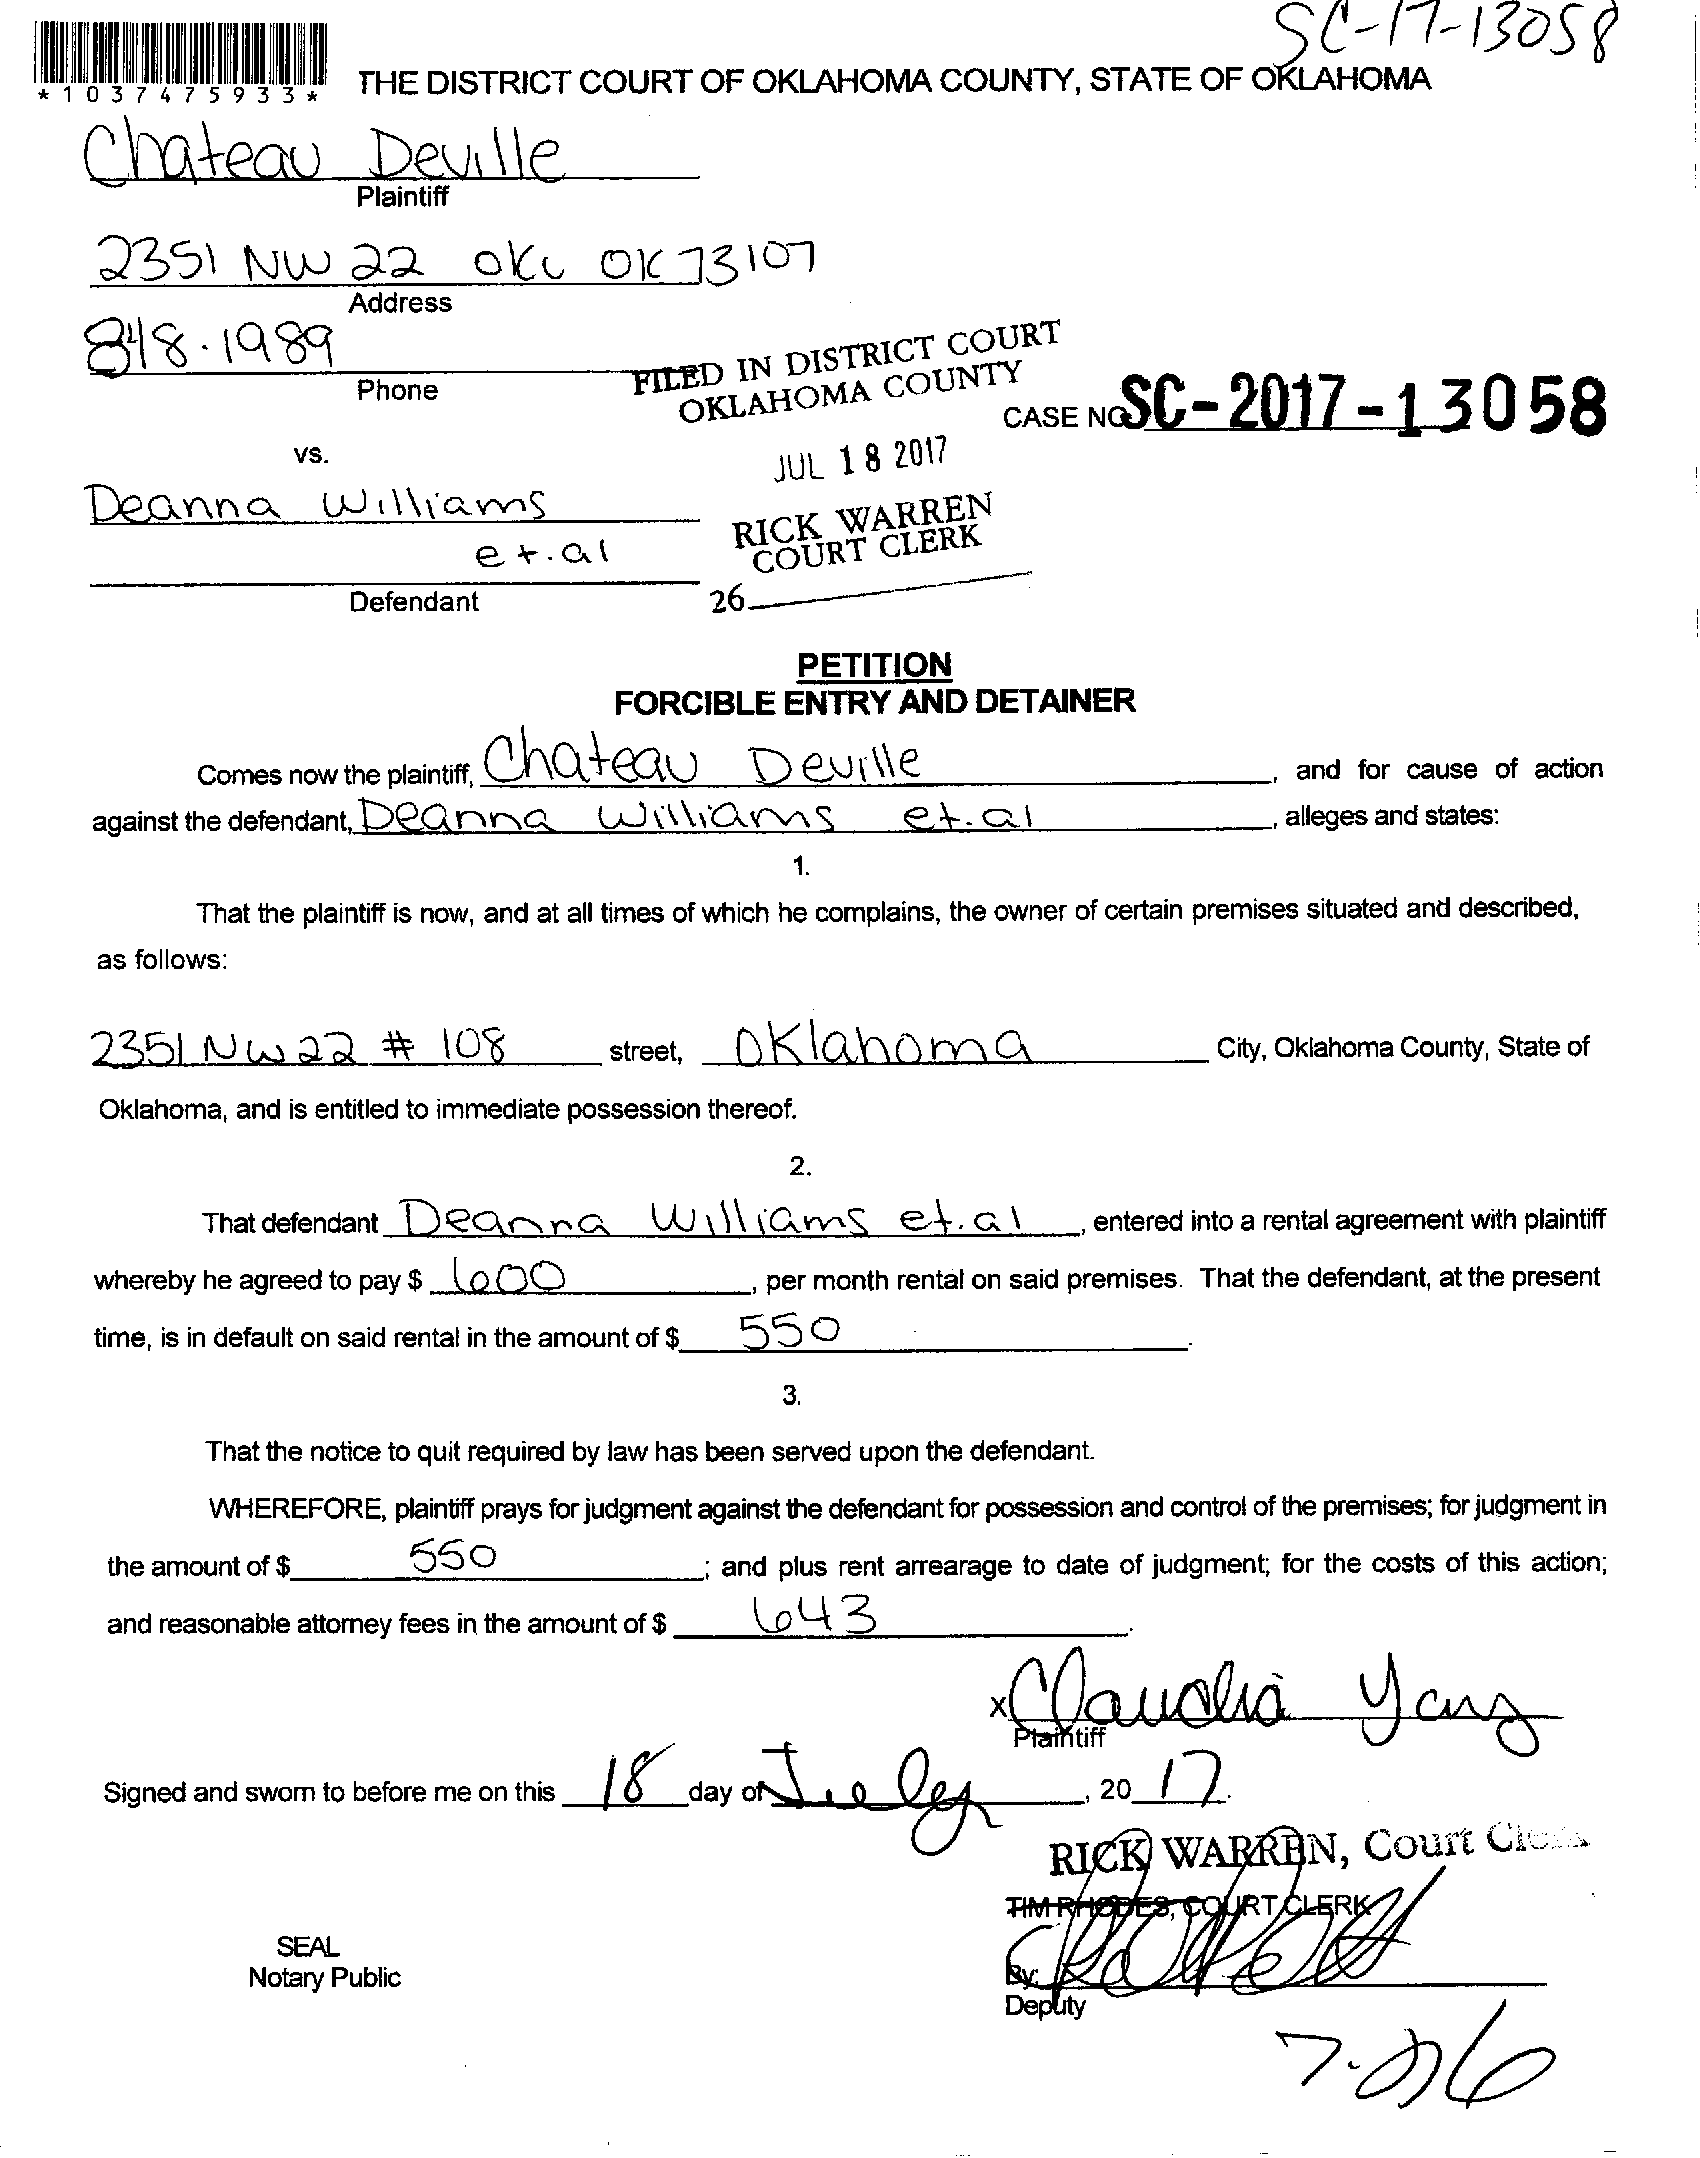 SC-17-13058
*1037475933*
THE DISTRICT COURT OF OKLAHOMA COUNTY, STATE OF OKLAHOMA
Chateau Deville
Plaintiff
2351 NW 22 OKC OK 73107
Address
848.1989
Phone
FILED IN DISTRICT COURT
OKLAHOMA COUNTY
CASE NO. SC-2017-13058
vs.
JUL 18 2017
Deanna Williams
et.al
RICK WARREN
COURT CLERK
Defendant
26
PETITION
FORCIBLE ENTRY AND DETAINER
Comes now the plaintiff, Chateau Deville, and for cause of action
against the defendant, Deanna Williams et.al, alleges and states:
1.
That the plaintiff is now, and at all times of which he complains, the owner of certain premises situated and described,
as follows:
2351 NW 22 # 108 street, Oklahoma City, Oklahoma County, State of
Oklahoma, and is entitled to immediate possession thereof.
2.
That defendant Deanna Williams et.al, entered into a rental agreement with plaintiff
whereby he agreed to pay $ 600, per month rental on said premises. That the defendant, at the present
time, is in default on said rental in the amount of $ 550.
3.
That the notice to quit required by law has been served upon the defendant.
WHEREFORE, plaintiff prays for judgment against the defendant for possession and control of the premises; for judgment in
the amount of $ 550; and plus rent arrearage to date of judgment; for the costs of this action;
and reasonable attorney fees in the amount of $ 643.
x Claudia Yang
Plaintiff
Signed and sworn to before me on this 18 day of July, 20 17.
RICK WARREN, Court Clerk
TIM RHODES, COURT CLERK
SEAL
Notary Public
By:
Deputy
7-26